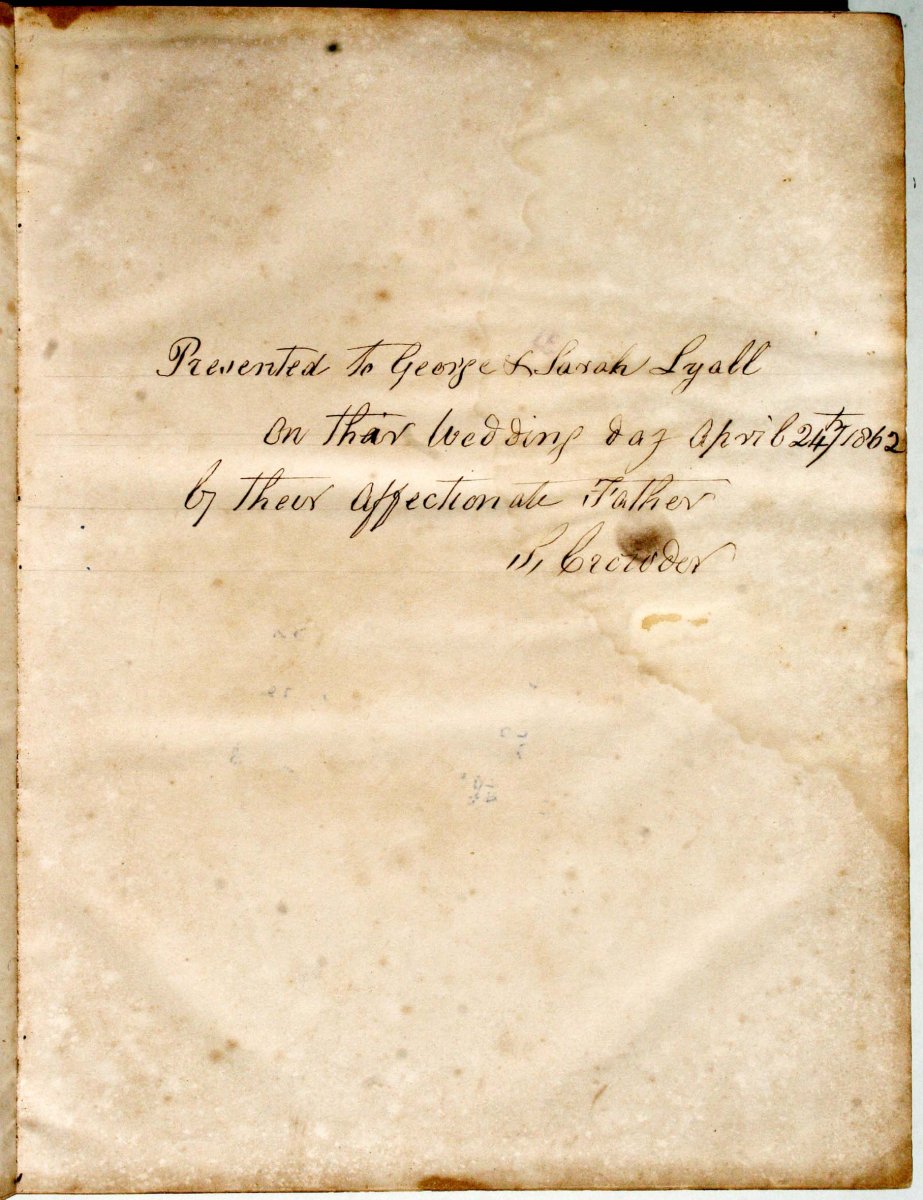 Presented to George & Sarah Lyall
on thair Wedding day April 24th/1862
by their affectionate Father
S, Crowder